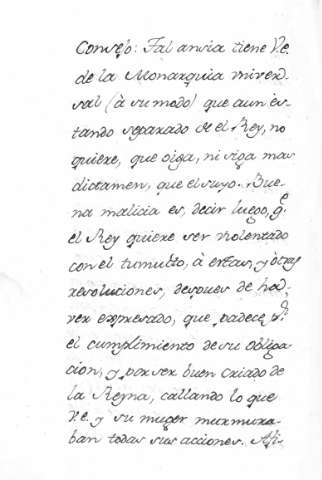 Consejo: Tal ansia tiene V.e.
de la Monarquia univer-
sal (à su modo) que aun es-
tando separado de el Rey, no
quiere, que oiga, ni siga mas
dictamen, que el suyo. Bue-
na malicia es, decir luego, q.e
el Rey quiere ser violentado
con el tumulto, à estas, y otras
resoluciones, despues de ha-
ver expresado, que padece p.r
el cumplimiento de su obliga-
cion, y por ser buen criado de
la Reyna, callando lo que
V.e. y su muger murmura-
ban todas sus acciones. Asi-